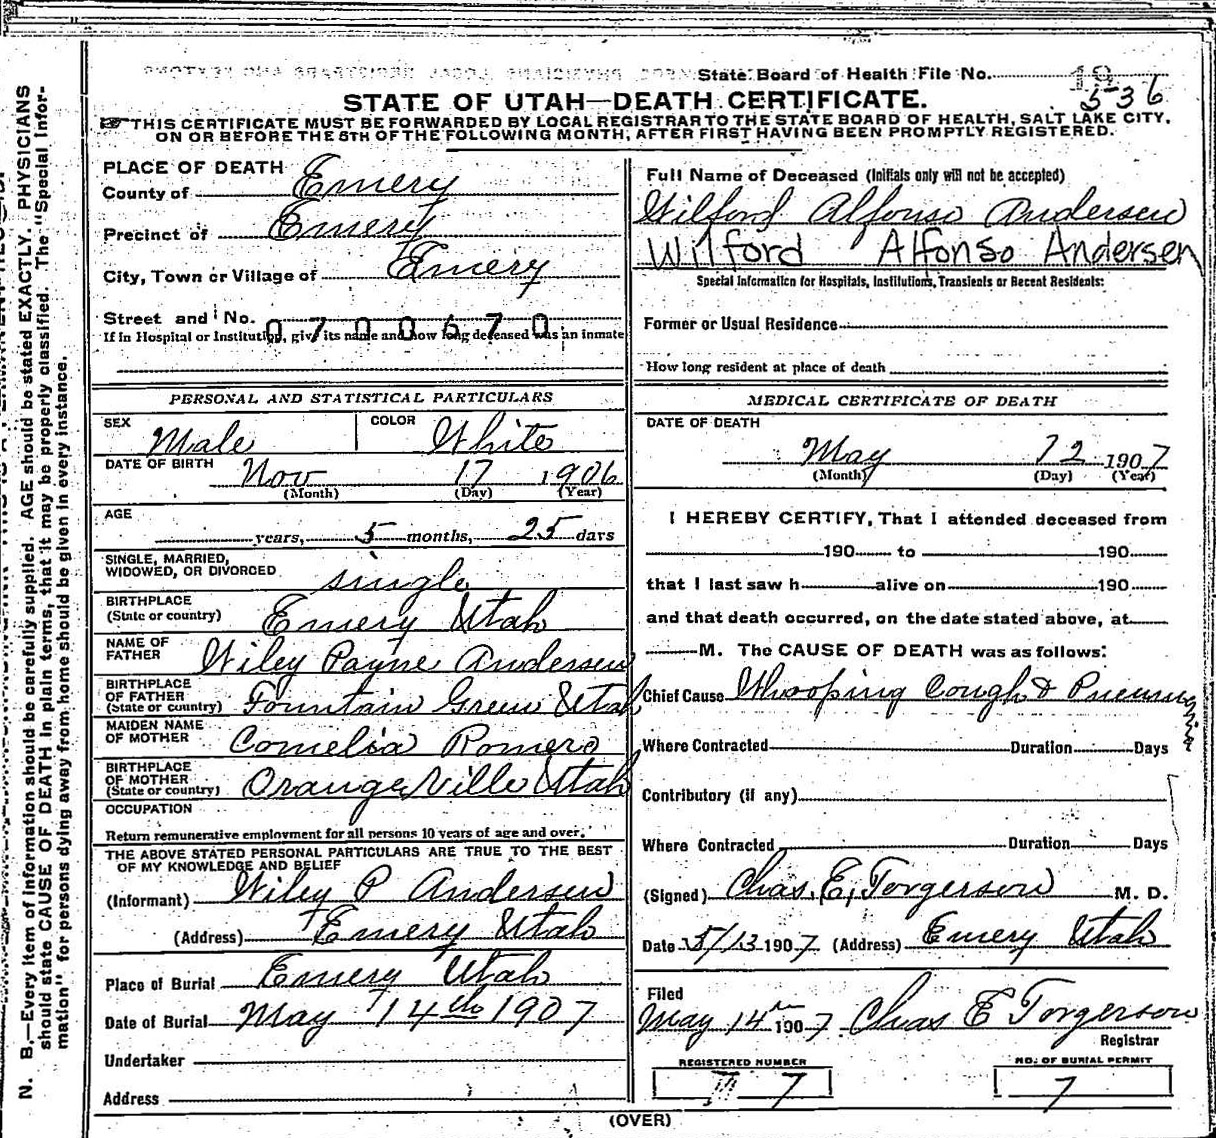 State Board of Health File No.
19
536
STATE OF UTAH—DEATH CERTIFICATE.
THIS CERTIFICATE MUST BE FORWARDED BY LOCAL REGISTRAR TO THE STATE BOARD OF HEALTH, SALT LAKE CITY,
ON OR BEFORE THE 5TH OF THE FOLLOWING MONTH, AFTER FIRST HAVING BEEN PROMPTLY REGISTERED.
PLACE OF DEATH
County of Emery
Precinct of Emery
City, Town or Village of Emery
Street and No.
0700670
If in Hospital or Institution, give its name and how long deceased was an inmate
Full Name of Deceased (Initials only will not be accepted)
Wilford Alfonso Andersen
Wilford Alfonso Andersen
Special Information for Hospitals, Institutions, Transients or Recent Residents:
Former or Usual Residence
How long resident at place of death
PERSONAL AND STATISTICAL PARTICULARS
SEX Male COLOR White
DATE OF BIRTH Nov 17 1906
(Month) (Day) (Year)
AGE
years, 5 months, 25 days
SINGLE, MARRIED,
WIDOWED, OR DIVORCED single
BIRTHPLACE
(State or country) Emery Utah
NAME OF
FATHER Wiley Payne Andersen
BIRTHPLACE
OF FATHER
(State or country) Fountain Green Utah
MAIDEN NAME
OF MOTHER Cornelia Romero
BIRTHPLACE
OF MOTHER
(State or country) Orangeville Utah
OCCUPATION
Return remunerative employment for all persons 10 years of age and over.
THE ABOVE STATED PERSONAL PARTICULARS ARE TRUE TO THE BEST
OF MY KNOWLEDGE AND BELIEF
(Informant) Wiley P Andersen
(Address) Emery Utah
Place of Burial Emery Utah
Date of Burial May 14th 1907
Undertaker
Address
MEDICAL CERTIFICATE OF DEATH
DATE OF DEATH
May 12 1907
(Month) (Day) (Year)
I HEREBY CERTIFY, That I attended deceased from
190 to 190
that I last saw h alive on 190
and that death occurred, on the date stated above, at
M. The CAUSE OF DEATH was as follows:
Chief Cause Whooping Cough &
Where Contracted Duration Days
Contributory (if any)
Where Contracted Duration Days
(Signed) Chas. E. Torgerson M. D.
Date 5/13 1907 (Address) Emery Utah
Filed
May 14th 1907 Chas E Torgerson
Registrar
REGISTERED NUMBER
7
NO. OF BURIAL PERMIT
7
(OVER)
N. B.—Every item of information should be carefully supplied. AGE should be stated EXACTLY. PHYSICIANS
should state CAUSE OF DEATH in plain terms, that it may be properly classified. The "Special Infor-
mation" for persons dying away from home should be given in every instance.